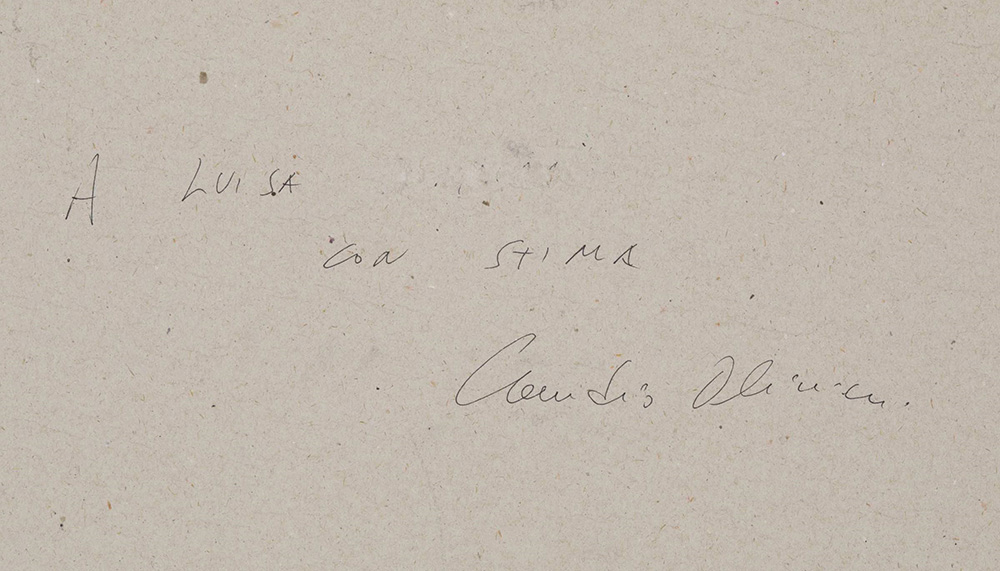 A LUISA
CON STIMA
Claudio Olivieri